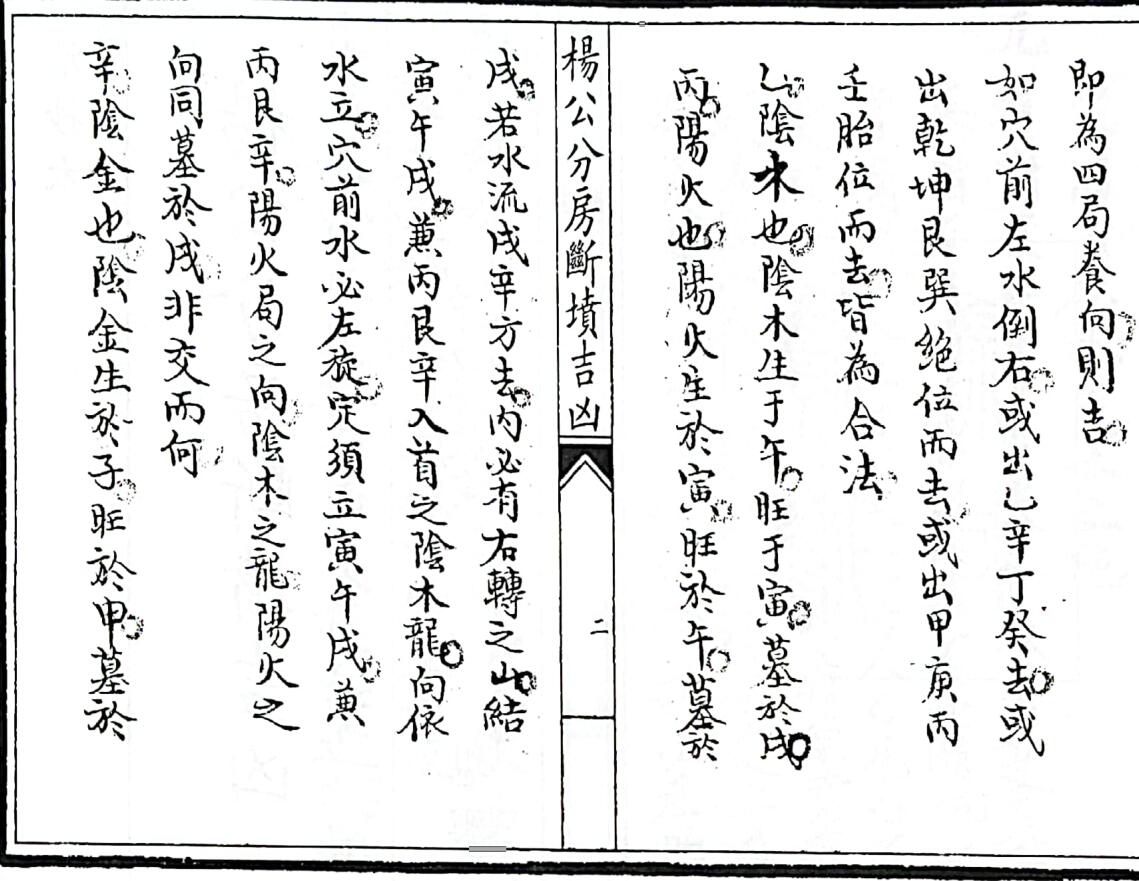 即為四局養向則吉
如穴前左水倒右或出乙辛丁癸去或
出乾坤艮巽絶位而去或出甲庚丙
壬胎位而去皆為合法
乙陰木也陰木生于午旺于寅墓於戌
丙陽火也陽火生於寅旺於午墓於
楊公分房斷墳吉凶
二
戌若水流戌辛方去内必有右轉之山結
寅午戌兼丙艮辛入首之陰木龍向依
水立穴前水必左旋定須立寅午戌兼
丙艮辛陽火局之向陰木之龍陽火之
向同墓於戌非交而何
辛陰金也陰金生於子旺於申墓於